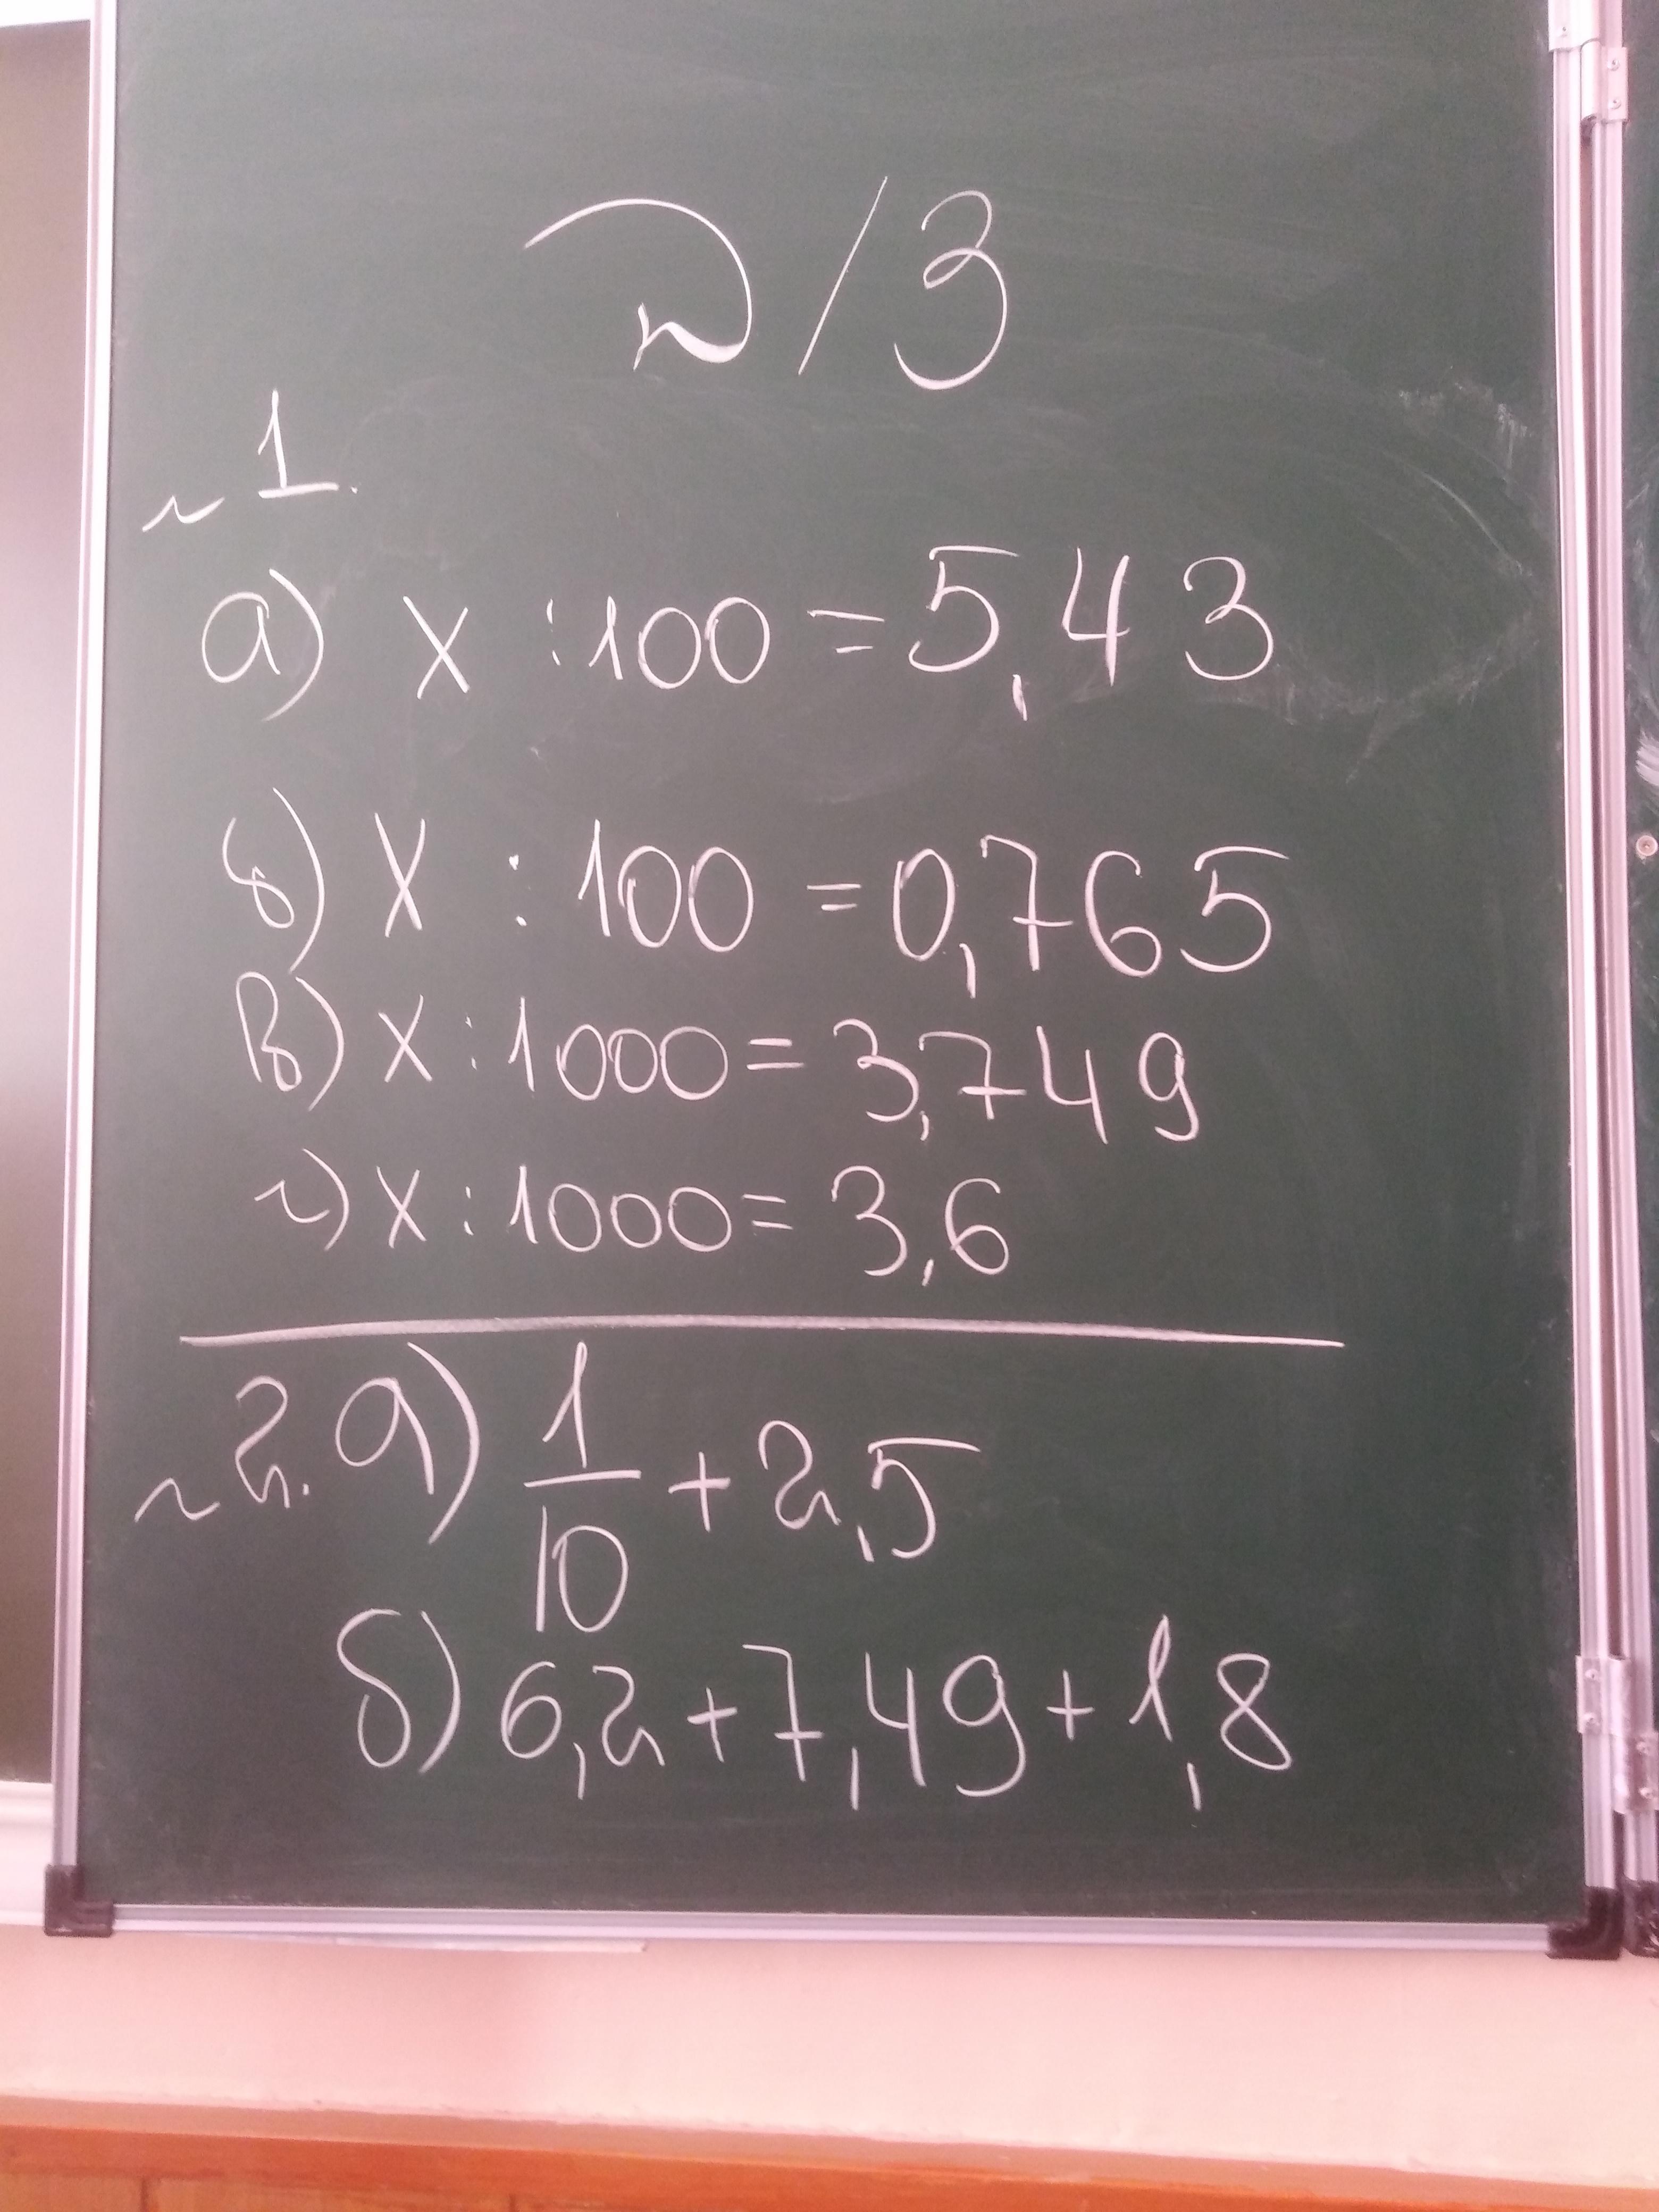 Д/З
~ 1.
а) x : 100 = 5,43
б) x : 100 = 0,765
в) x : 1000 = 3,749
г) x : 1000 = 3,6
~ 2. а) 1/10 + 2,5
б) 6,2 + 7,49 + 1,8